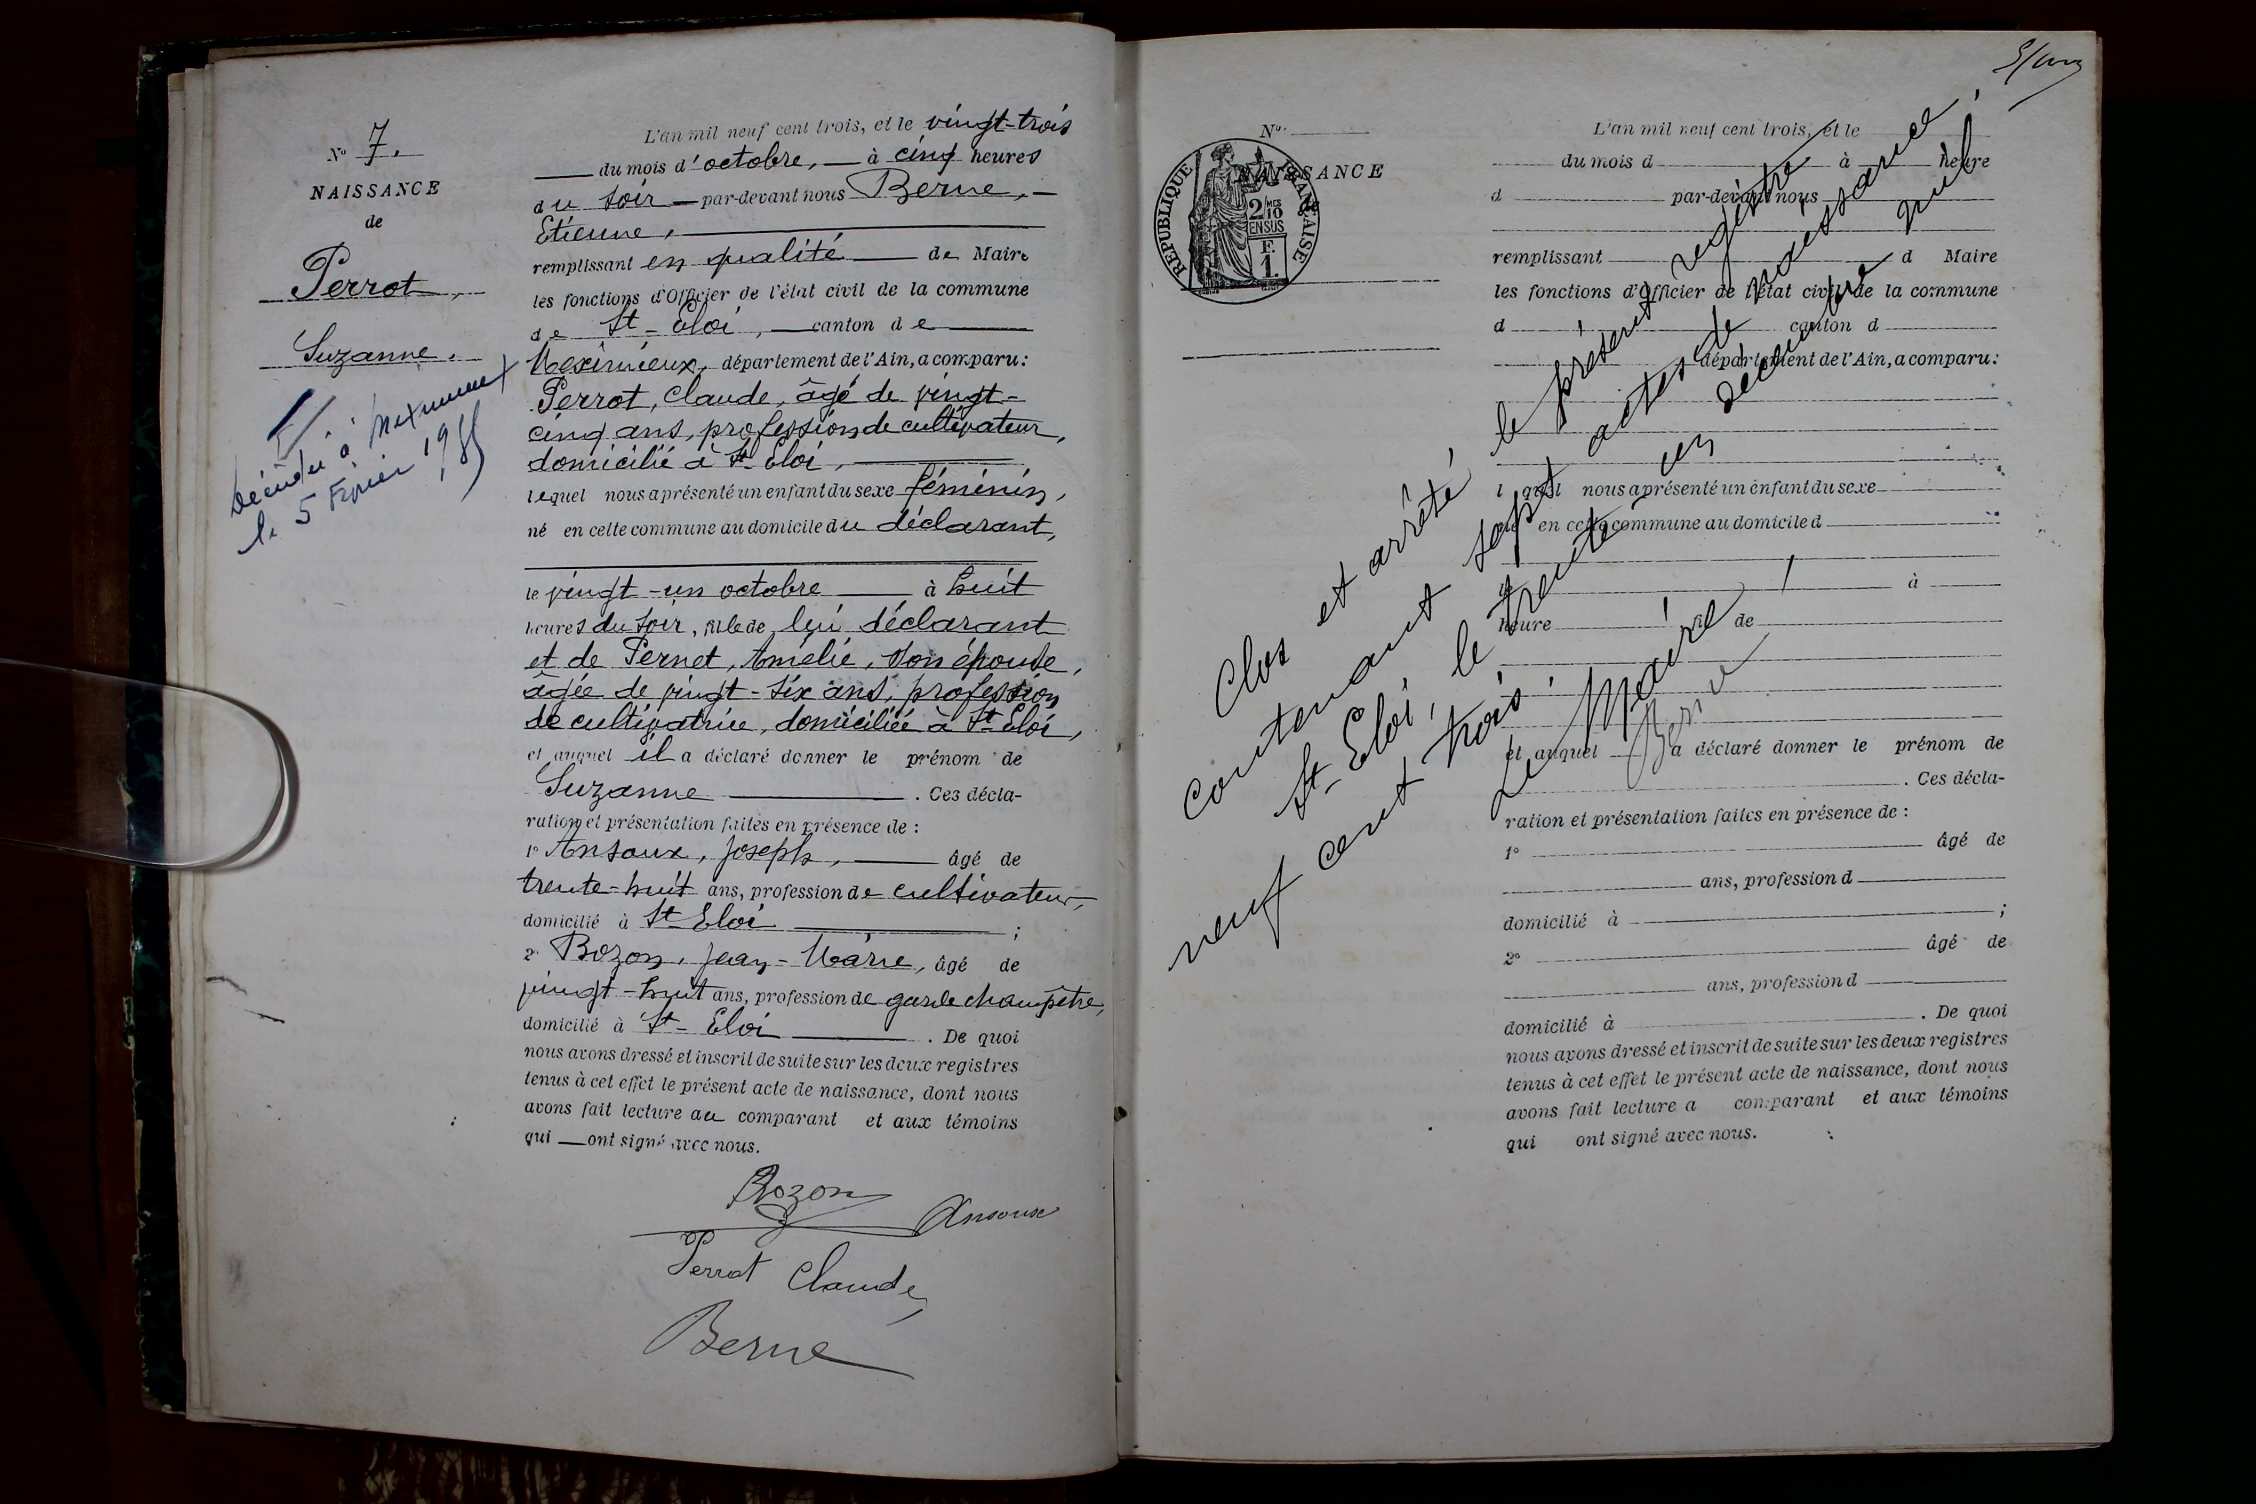 Nº 7.
NAISSANCE
de
Perrot,
Suzanne.
Décédée à Meximieux
le 5 Février 1985
L'an mil neuf cent trois, et le vingt-trois
du mois d'octobre, — à cinq heures
du soir — par-devant nous Berne, —
Etienne,
remplissant en qualité — de Maire
les fonctions d'Officier de l'état civil de la commune
de St-Eloi, — canton de —
Meximieux, département de l'Ain, a comparu:
Perrot, Claude, âgé de vingt-
cinq ans, profession de cultivateur,
domicilié à St-Eloi, —
lequel nous a présenté un enfant du sexe féminin,
né en cette commune au domicile du déclarant,
le vingt-un octobre — à huit
heures du soir, fille de lui déclarant
et de Pernet, Amélie, son épouse,
âgée de vingt-six ans, profession
de cultivatrice, domiciliée à St-Eloi,
et auquel il a déclaré donner le prénom de
Suzanne — . Ces décla-
ration et présentation faites en présence de :
1º Ansoux, Joseph, — âgé de
trente-huit ans, profession de cultivateur,
domicilié à St-Eloi — ;
2º Bozon, Jean-Marie, âgé de
vingt-huit ans, profession de garde champêtre,
domicilié à St-Eloi — . De quoi
nous avons dressé et inscrit de suite sur les deux registres
tenus à cet effet le présent acte de naissance, dont nous
avons fait lecture au comparant et aux témoins
qui — ont signé avec nous.
Bozon
Ansoux
Perrot Claude
Berne
Nº
NAISSANCE
de
REPUBLIQUE FRANÇAISE
2/10 MES
EN SUS
F.
1.
L'an mil neuf cent trois, et le
du mois d à heure
d par-devant nous
remplissant d Maire
les fonctions d'Officier de l'état civil de la commune
d canton d
département de l'Ain, a comparu:
l quel nous a présenté un enfant du sexe
né en cette commune au domicile d
le à
heure fil de
et auquel a déclaré donner le prénom de
. Ces décla-
ration et présentation faites en présence de :
1º âgé de
ans, profession d
domicilié à ;
2º âgé de
ans, profession d
domicilié à . De quoi
nous avons dressé et inscrit de suite sur les deux registres
tenus à cet effet le présent acte de naissance, dont nous
avons fait lecture a comparant et aux témoins
qui ont signé avec nous.
Clos et arrêté le présent registre
contenant sept actes de naissance,
St-Eloi, le trente un décembre mil
neuf cent trois.
Le Maire,
Berne